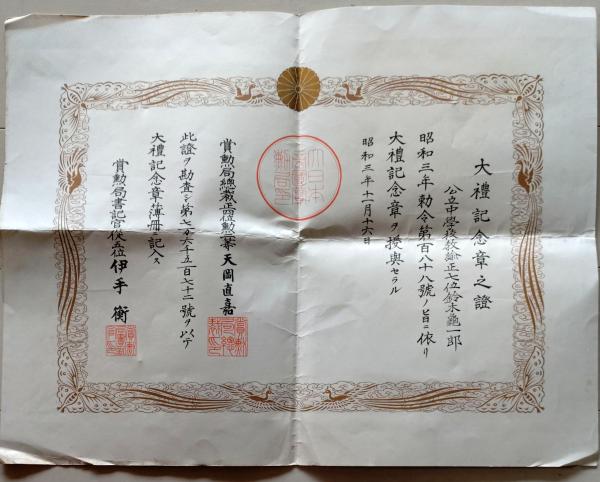 大禮記念章之證
公立中學校教諭正七位鈴木龜一郎
昭和三年勅令第百八十八號ノ旨ニ依リ
大禮記念章ヲ授與セラル
昭和三年十一月十六日
大日本
賞勲局總裁正四位勲二等天岡直嘉
此證ヲ勘査シ第七万六千五百七十二號ヲ以テ
大禮記念章簿冊ニ記入ス
賞勲局書記官從五位伊手衡